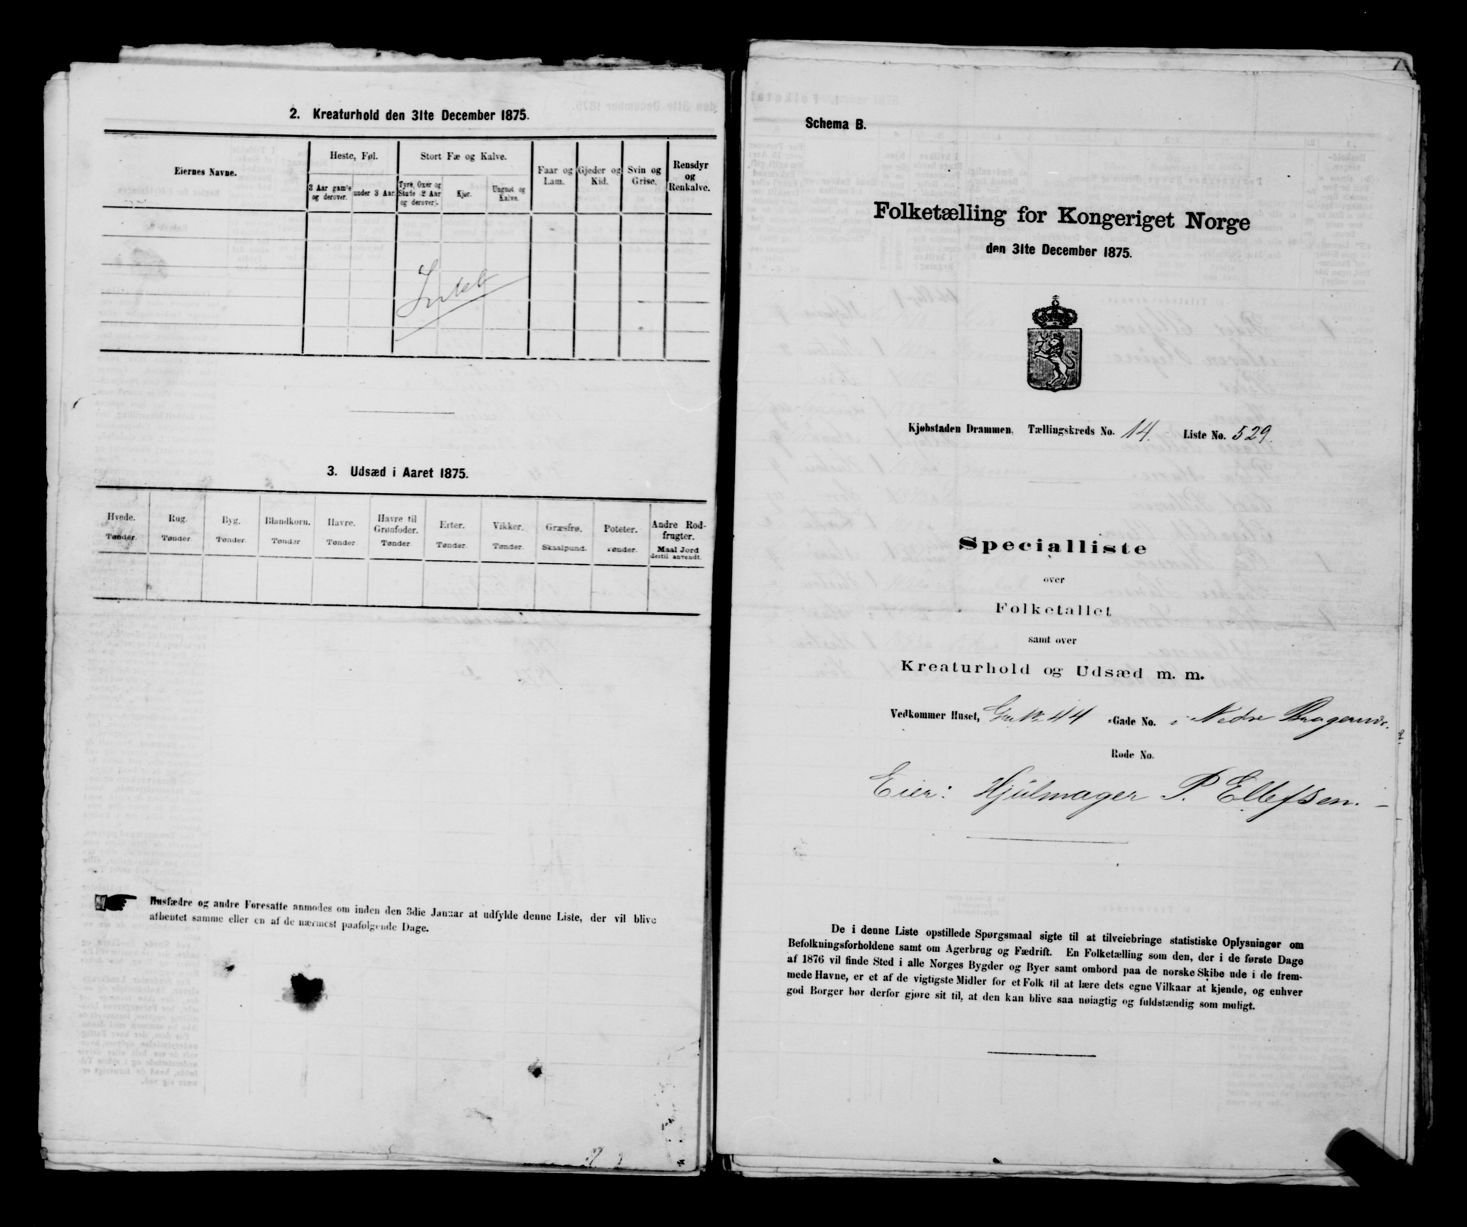 2. Kreaturhold den 31te December 1875.
Eiernes Navne.
Heste, Føl.
Stort Fæ og Kalve.
Faar og Lam.
Gjeder og Kid.
Svin og Grise.
Rensdyr og Renkalve.
3 Aar gamle og derover.
under 3 Aar.
Tyre, Oxer og Stude (2 Aar og derover).
Kjør.
Ungnøt og Kalve.
Intet
3. Udsæd i Aaret 1875.
Hvede. Rug. Byg. Blandkorn. Havre. Havre til Grønfoder. Erter. Vikker. Græsfrø. Poteter. Andre Rodfrugter.
Tønder. Tønder. Tønder. Tønder. Tønder. Tønder. Tønder. Tønder. Skaalpund. Tønder. Maal Jord dertil anvendt.
Husfædre og andre Foresatte anmodes om inden den 3die Januar at udfylde denne Liste, der vil blive
afhentet samme eller en af de nærmest paafølgende Dage.
Schema B.
Folketælling for Kongeriget Norge
den 31te December 1875.
Kjøbstaden Drammen. Tællingskreds No. 14. Liste No. 529.
Specialliste
over
Folketallet
samt over
Kreaturhold og Udsæd m. m.
Vedkommer Huset, 44 Gade No. i Nedre Bragernæs
Rode No.
Eier: Hjulmager P. Ellefsen.
De i denne Liste opstillede Spørgsmaal sigte til at tilveiebringe statistiske Oplysninger om
Befolkningsforholdene samt om Agerbrug og Fædrift. En Folketælling som den, der i de første Dage
af 1876 vil finde Sted i alle Norges Bygder og Byer samt ombord paa de norske Skibe ude i de frem-
mede Havne, er et af de vigtigste Midler for et Folk til at lære dets egne Vilkaar at kjende, og enhver
god Borger bør derfor gjøre sit til, at den kan blive saa nøiagtig og fuldstændig som muligt.